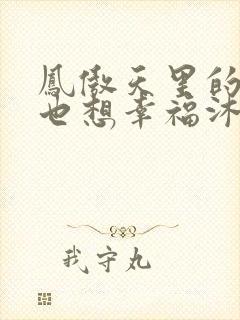 鳳傲天里的
也想幸福沐
我守丸